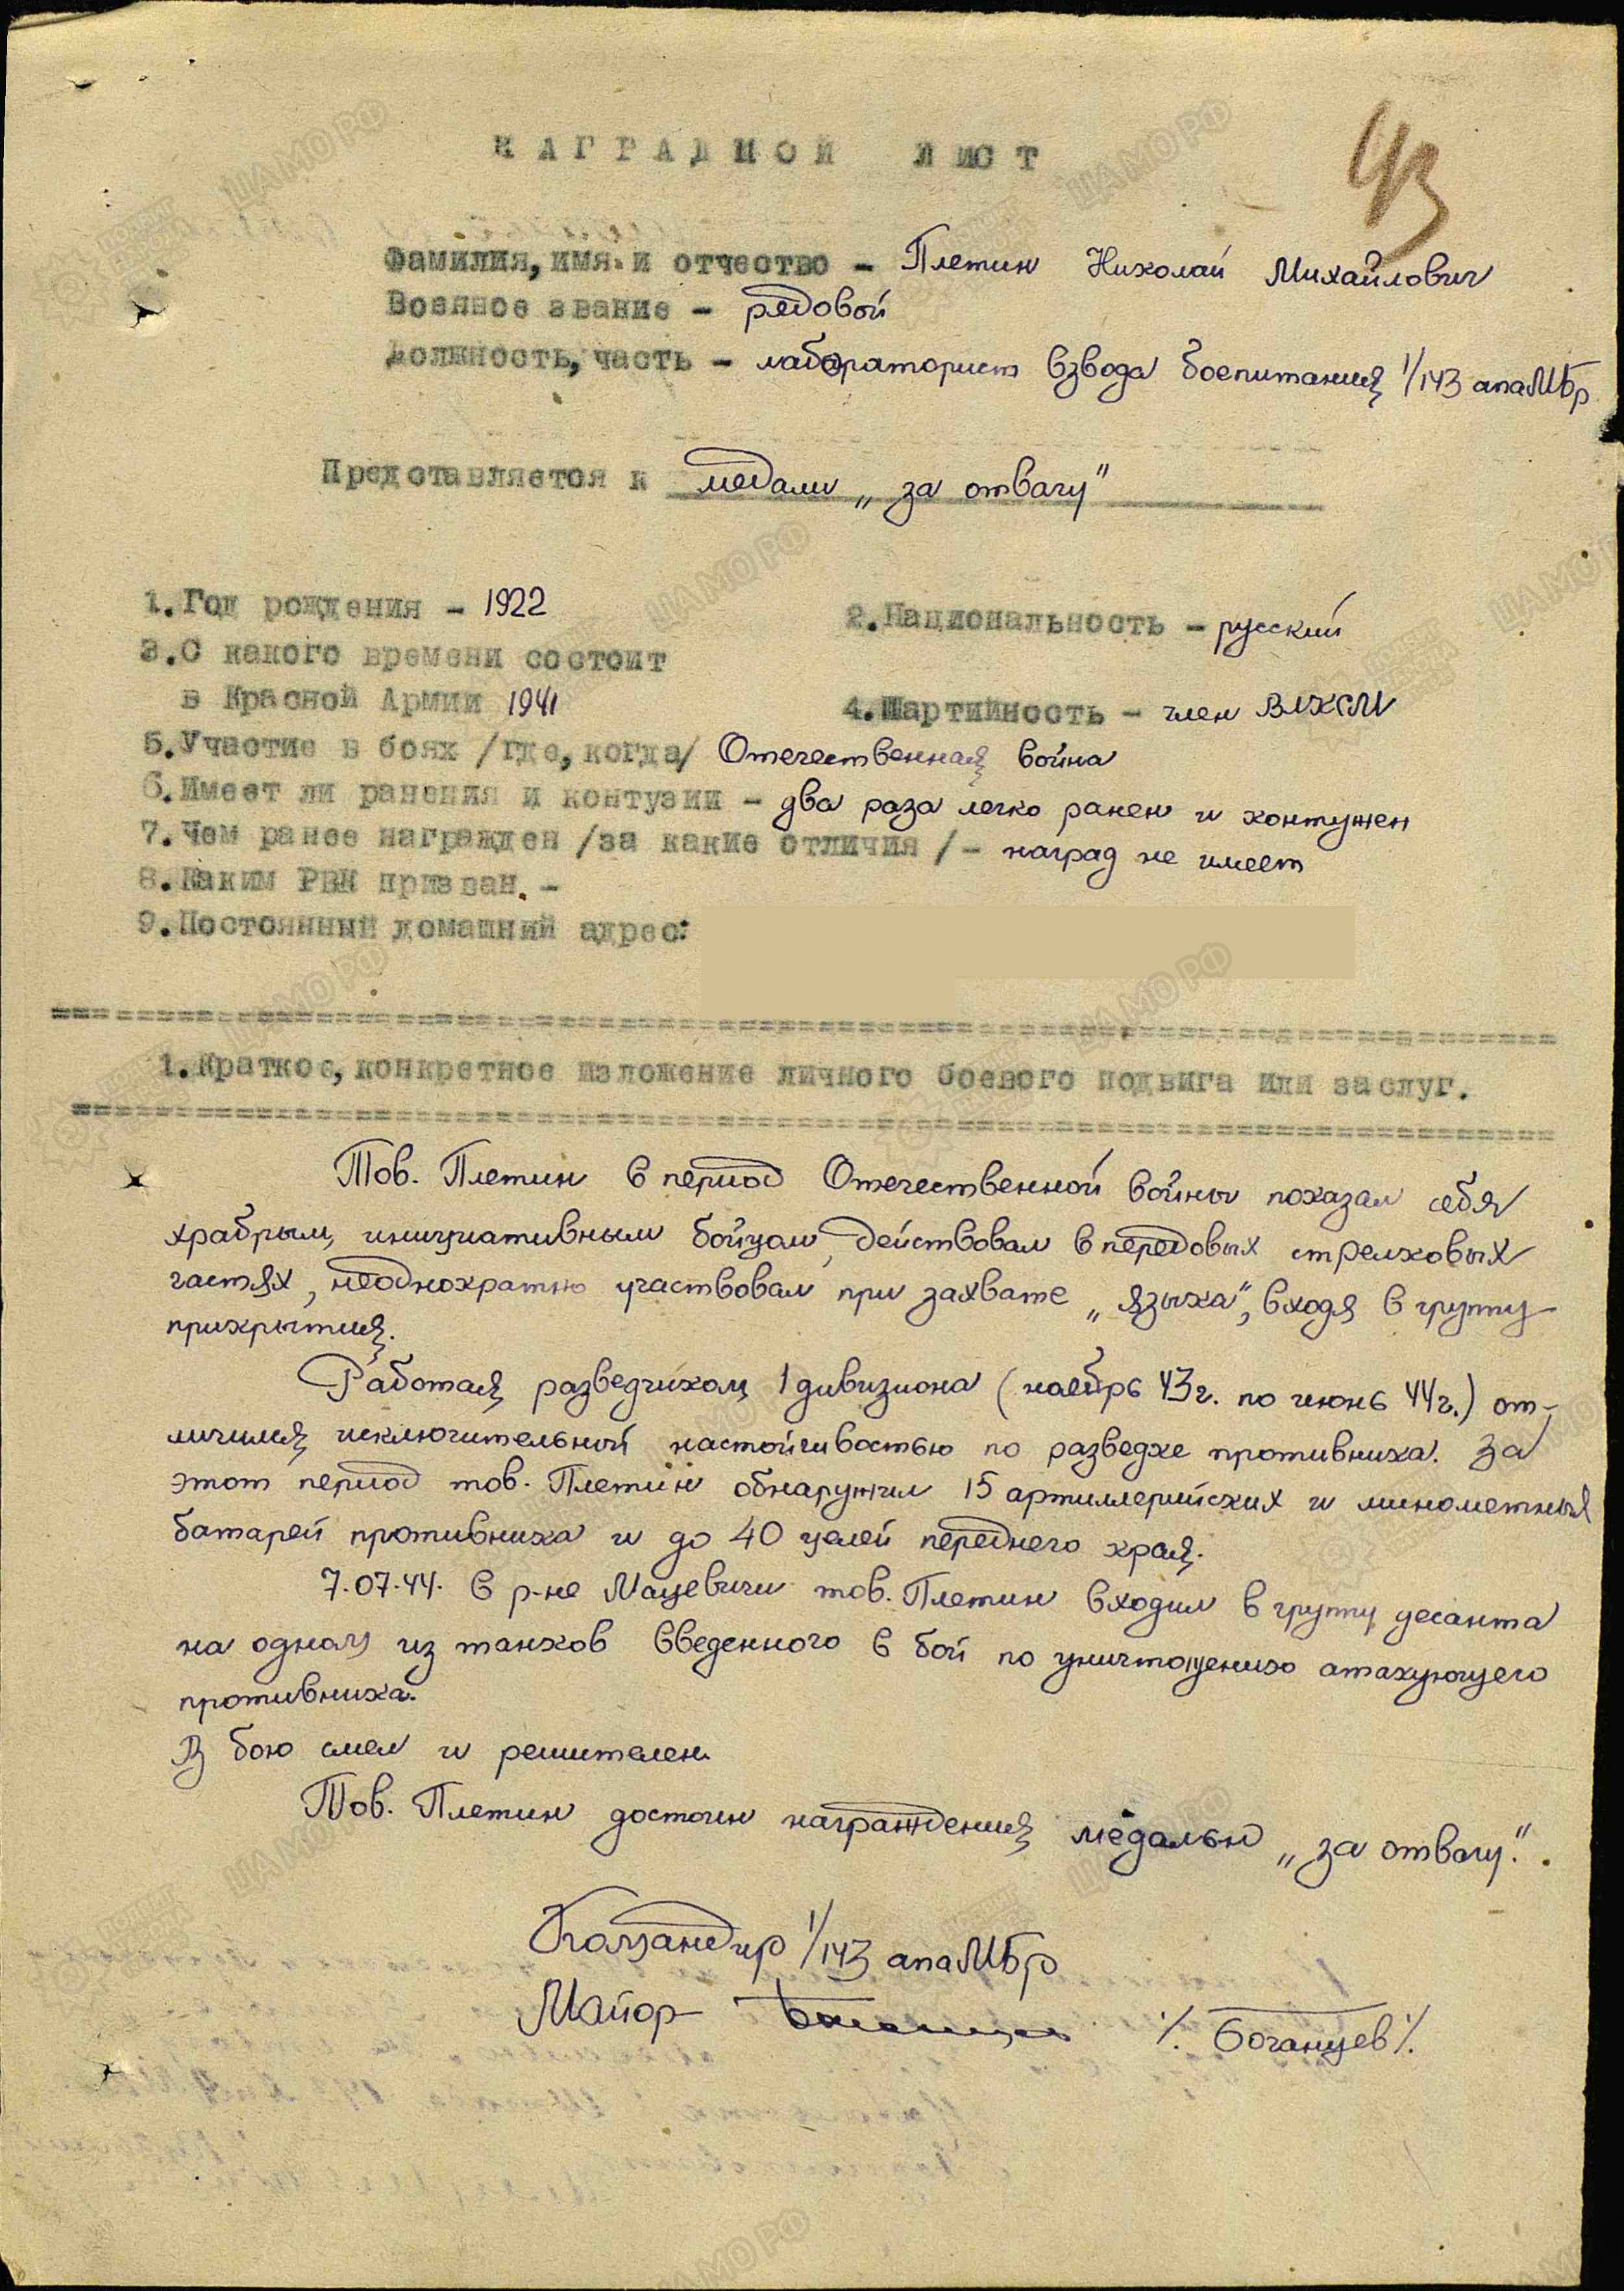 43
НАГРАДНОЙ ЛИСТ
Фамилия, имя и отчество – Плетин Николай Михайлович
Военное звание – рядовой
Должность, часть – лабораторист взвода боепитания 1/143 апаМБр
Представляется к медали „за отвагу"
1. Год рождения – 1922 2. Национальность – русский
3. С какого времени состоит
в Красной Армии 1941 4. Партийность – член ВЛКСМ
5. Участие в боях /где, когда/ Отечественная война
6. Имеет ли ранения и контузии – два раза легко ранен и контужен
7. Чем ранее награжден /за какие отличия/ – наград не имеет
8. Каким РВК призван. –
9. Постоянный домашний адрес:
1. Краткое, конкретное изложение личного боевого подвига или заслуг.
Тов. Плетин в период Отечественной войны показал себя
храбрым, инициативным бойцом, действовал в передовых стрелковых
частях, неоднократно участвовал при захвате „языка", входя в группу
прикрытия.
Работая разведчиком 1 дивизиона (ноябрь 43 г. по июнь 44 г.) от-
личился исключительной настойчивостью по разведке противника. За
этот период тов. Плетин обнаружил 15 артиллерийских и минометных
батарей противника и до 40 целей переднего края.
7.07.44. в р-не Мацевичи тов. Плетин входил в группу десанта
на одном из танков введенного в бой по уничтожению атакующего
противника.
В бою смел и решителен.
Тов. Плетин достоин награждения медалью „за отвагу".
Командир 1/143 апаМБр
Майор /. Боганцев /.
ЦАМО РФ